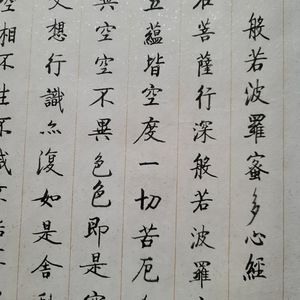 般若波羅蜜多心經
菩薩行深般若波羅
五蘊皆空度一切苦厄
異空空不異色色即是
想行識亦復如是舍
相不生不滅不